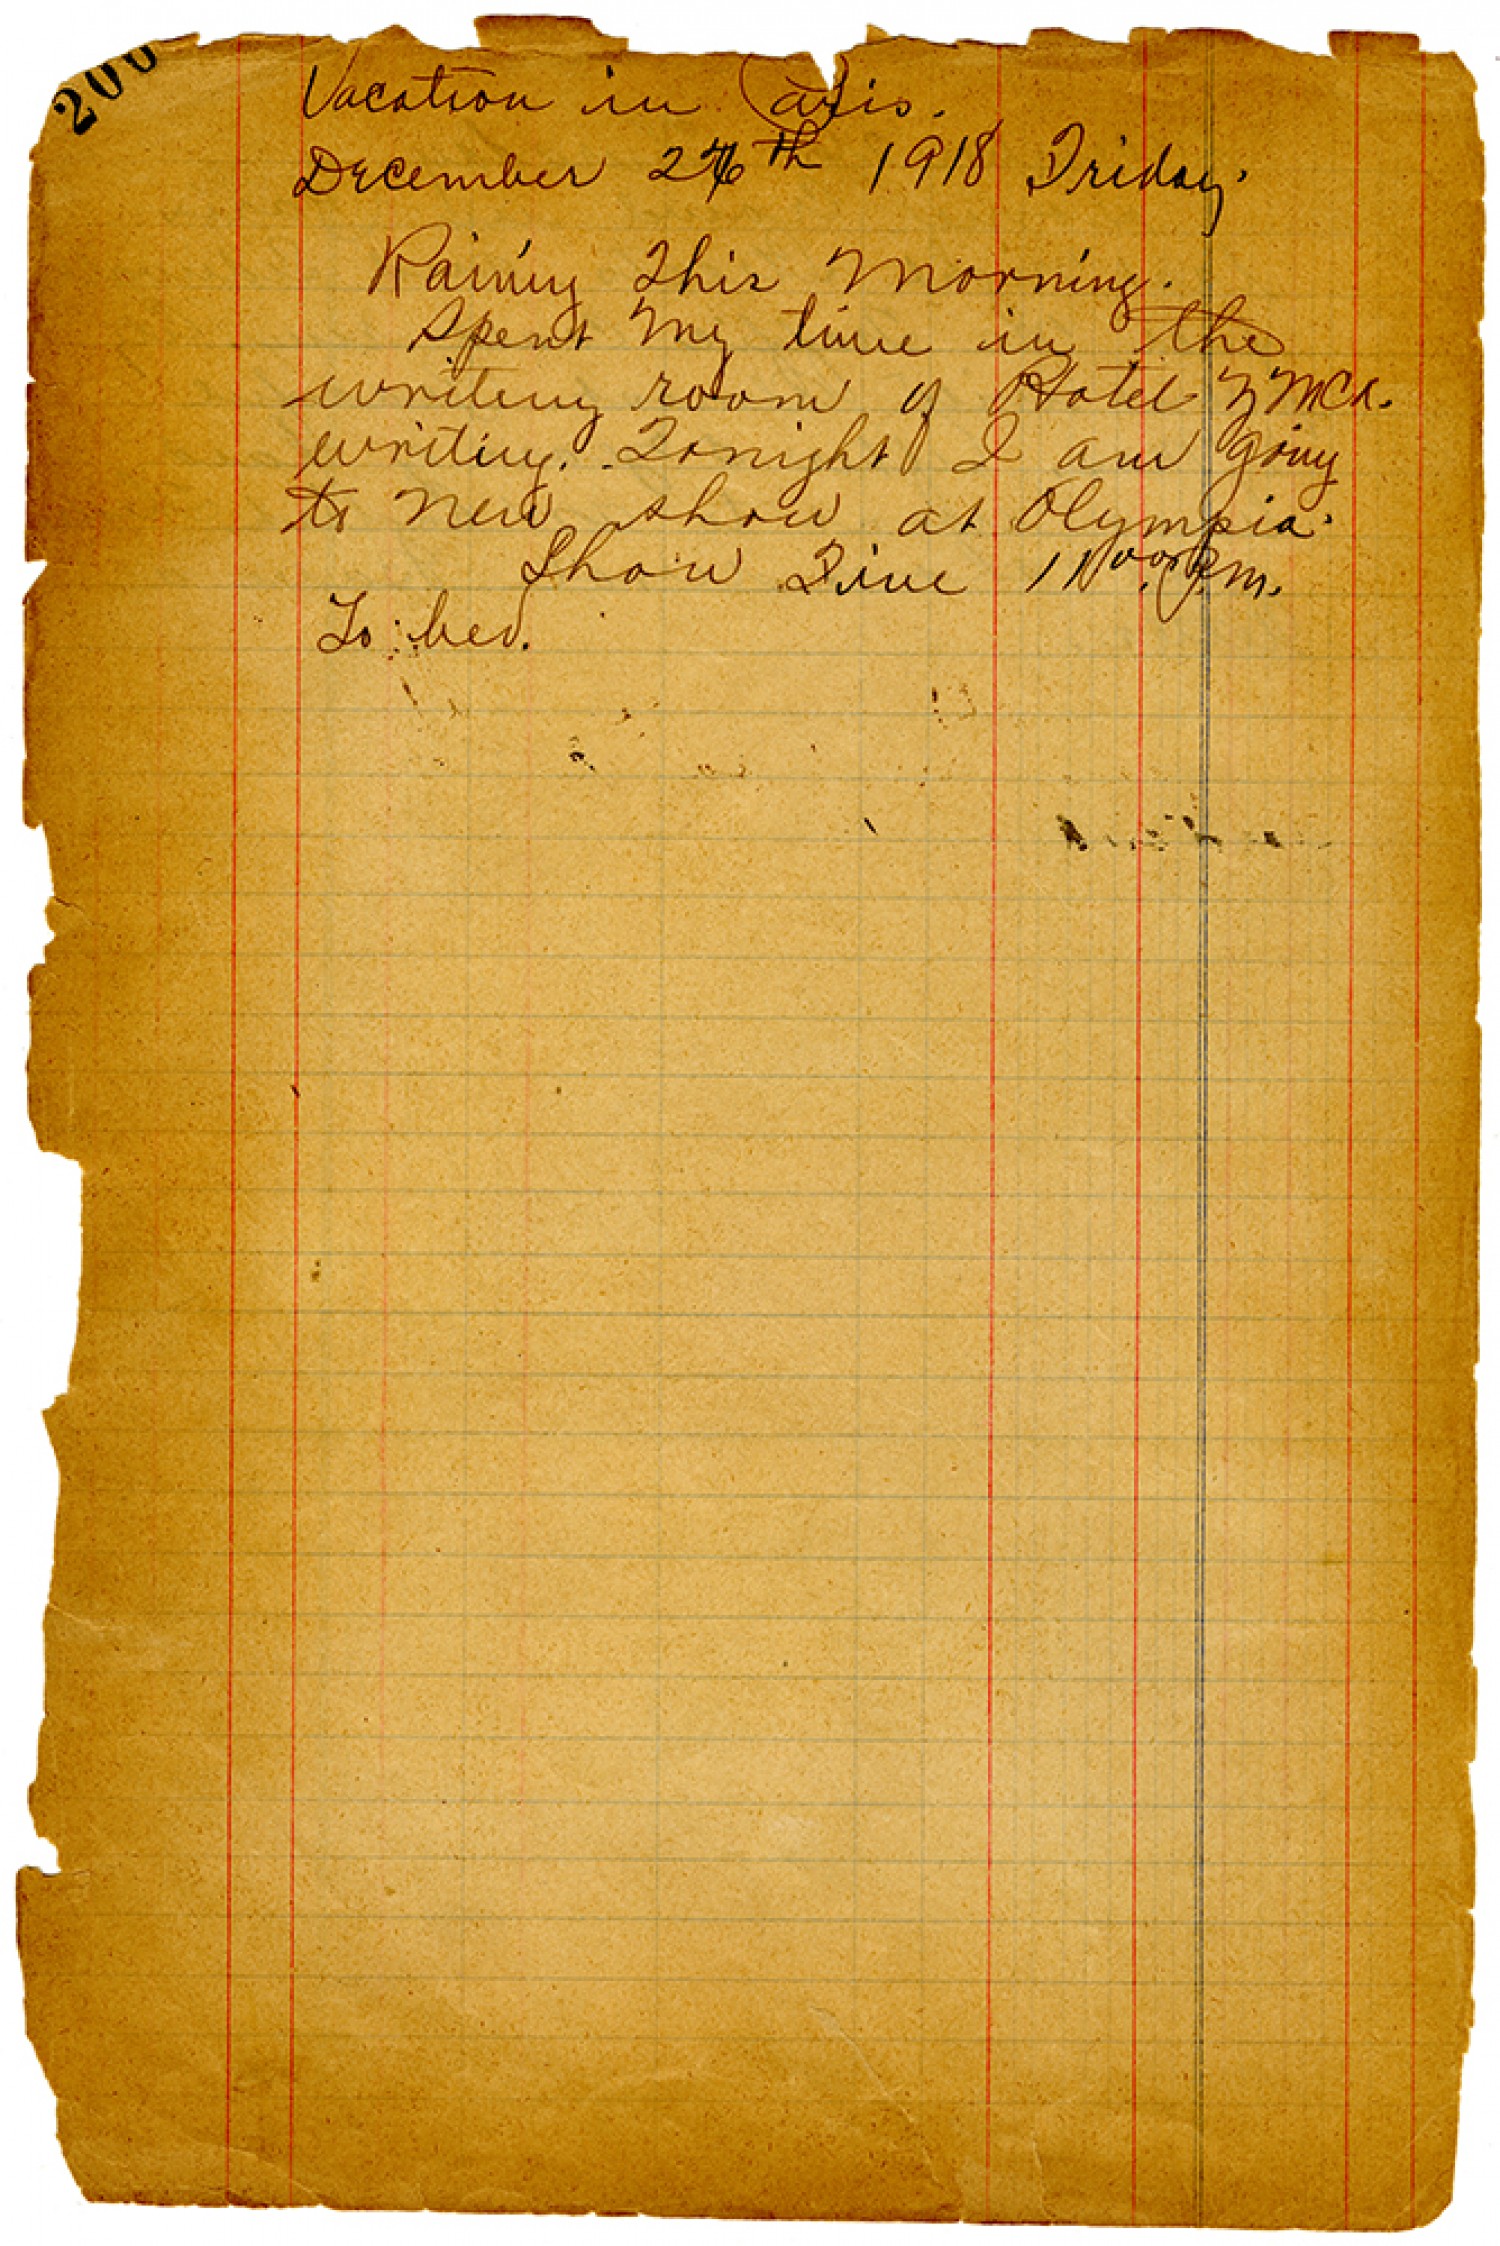 200
Vacation in Paris.
December 26th 1918 Friday.
Rainy This Morning.
Spent My time in the
writing room of Hotel Y M C A.
writing. Tonight I am going
to New show at Olympia.
Show Fine 11 00 P.M.
To bed.